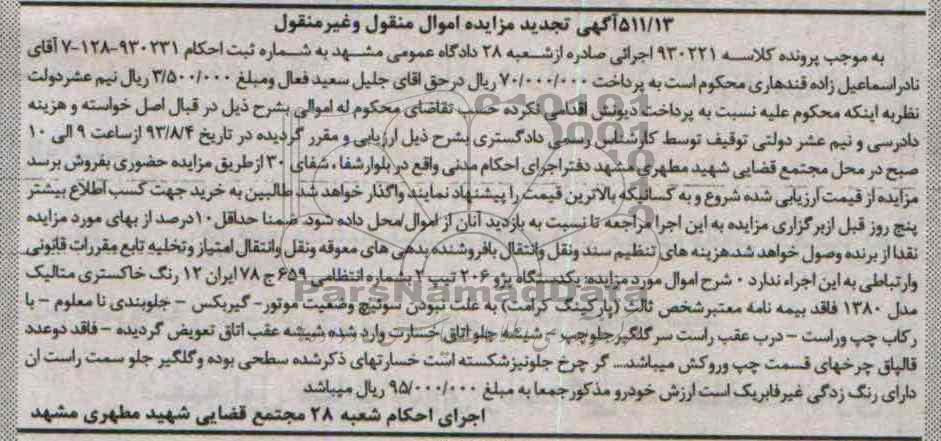 ۵۱۱/۱۳آگهی تجدید مزایده اموال منقول وغیرمنقول
به موجب پرونده کلاسه ۹۳۰۲۲۱ اجرائی صادره ازشعبه ۲۸ دادگاه عمومی مشهد به شماره ثبت احکام ۹۳۰۲۳۱-۱۲۸-۷ آقای
نادراسماعیل زاده قندهاری محکوم است به پرداخت ۷۰/۰۰۰/۰۰۰ ریال درحق اقای جلیل سعید فعال ومبلغ ۳/۵۰۰/۰۰۰ ریال نیم عشردولت
نظربه اینکه محکوم علیه نسبت به پرداخت دیونش اقدامی نکرده حسب تقاضای محکوم له اموالی بشرح ذیل در قبال اصل خواسته و هزینه
دادرسی و نیم عشر دولتی توقیف توسط کارشناس رسمی دادگستری بشرح ذیل ارزیابی و مقرر گردیده در تاریخ ۹۳/۸/۴ ازساعت ۹ الی ۱۰
صبح در محل مجتمع قضایی شهید مطهری مشهد دفتراجرای احکام مدنی واقع در بلوارشفا، شفای ۳۰ ازطریق مزایده حضوری بفروش برسد
مزایده از قیمت ارزیابی شده شروع و به کسانیکه بالاترین قیمت را پیشنهاد نمایند واگذار خواهد شد طالبین به خرید جهت کسب اطلاع بیشتر
پنج روز قبل ازبرگزاری مزایده به این اجرا مراجعه تا نسبت به بازدید آنان از اموال/محل داده شود. ضمنا حداقل ۱۰درصد از بهای مورد مزایده
نقدا از برنده وصول خواهد شد.هزینه های تنظیم سند ونقل وانتقال بافروشنده بدهی های معوقه ونقل وانتقال امتیاز وتخلیه تابع مقررات قانونی
وارتباطی به این اجراء ندارد ۰ شرح اموال مورد مزایده: یکدستگاه پژو ۲۰۶ تیپ ۲ بشماره انتظامی ۶۵۹ ج ۷۸ ایران ۱۲ رنگ خاکستری متالیک
مدل ۱۳۸۰ فاقد بیمه نامه معتبرشخص ثالث (پارکینگ کرامت) به علت نبودن سوئیچ وضعیت موتور- گیربکس - جلوبندی نا معلوم - با
رکاب چپ وراست - درب عقب راست سر گلگیرجلوچپ - شیشه جلو اتاق خسارت وارد شده شیشه عقب اتاق تعویض گردیده - فاقد دوعدد
قالپاق چرخهای قسمت چپ وروکش میباشد... گر چرخ جلونیزشکسته است خسارتهای ذکرشده سطحی بوده وگلگیر جلو سمت راست ان
دارای رنگ زدگی غیرفابریک است ارزش خودرو مذکورجمعا به مبلغ ۹۵/۰۰۰/۰۰۰ ریال میباشد
اجرای احکام شعبه ۲۸ مجتمع قضایی شهید مطهری مشهد
ParsNamadData